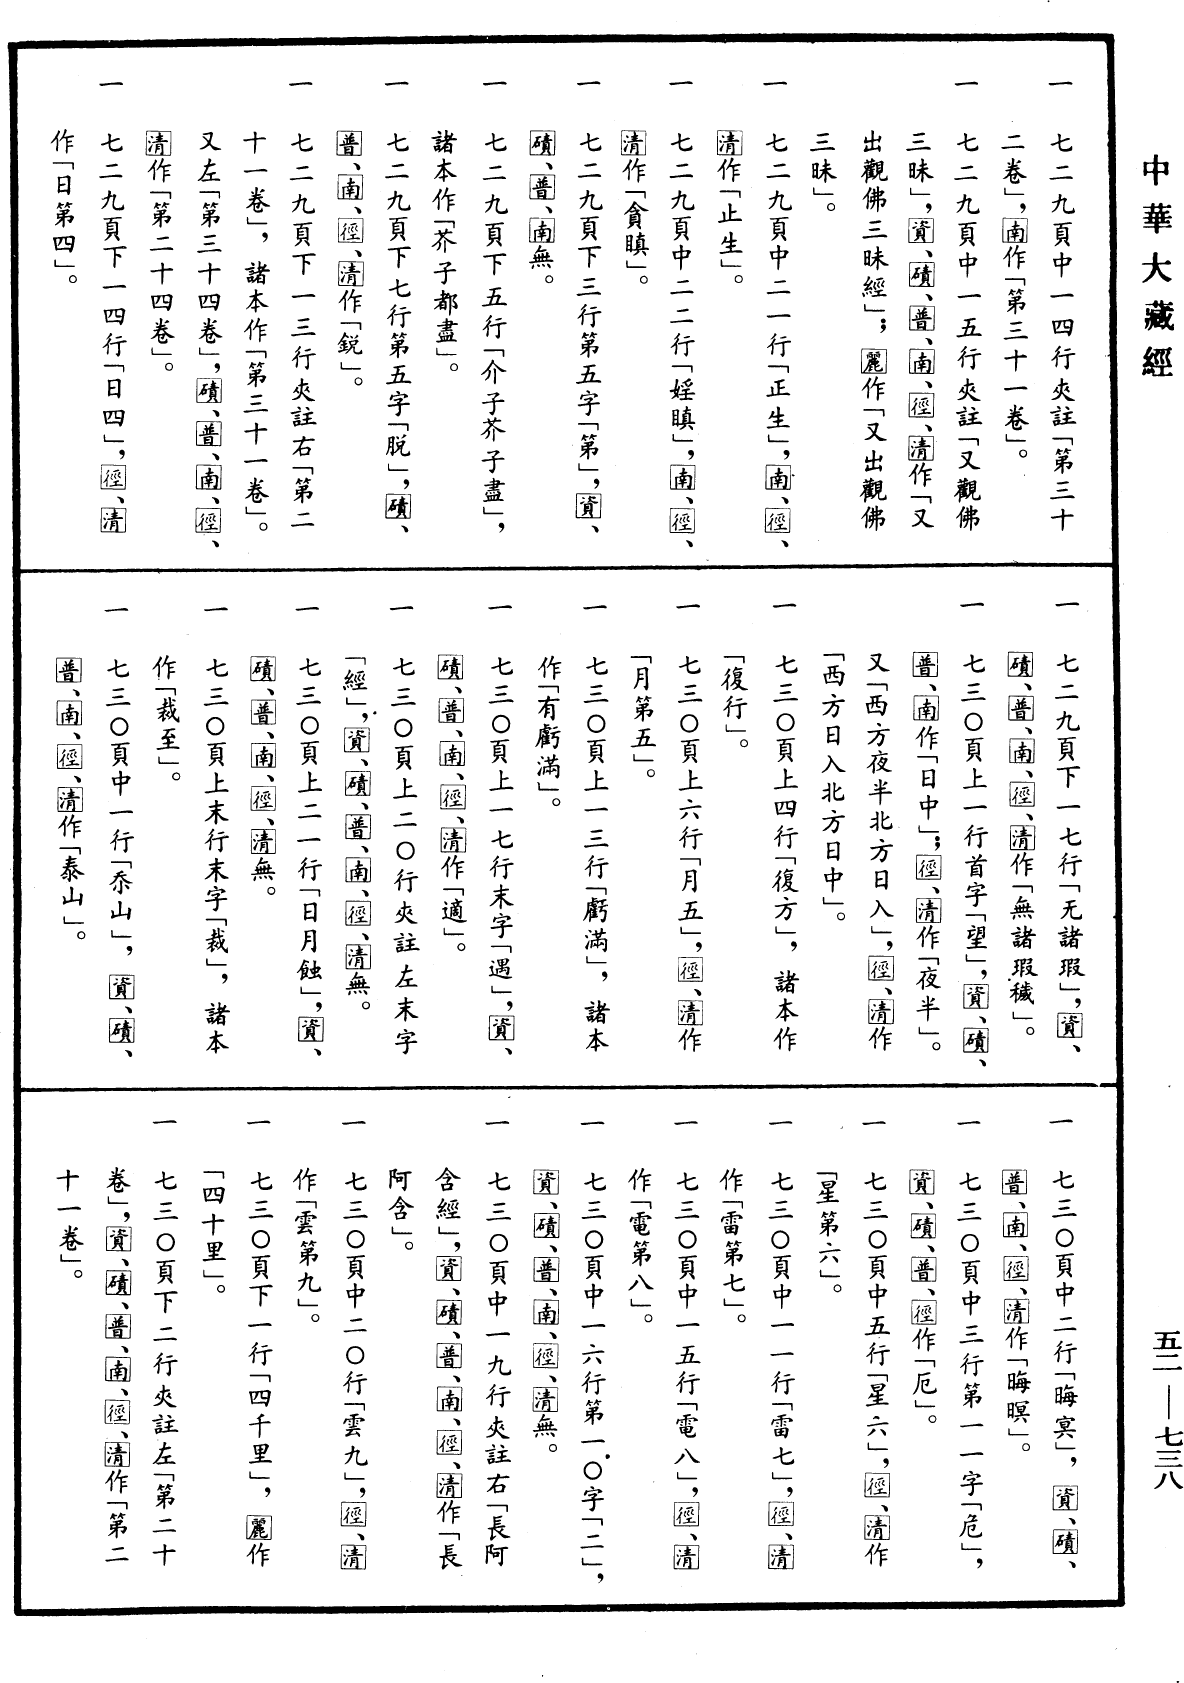 中華大藏經
一　七二九頁中一四行夾註「第三十
二卷」，南作「第三十一卷」。
一　七二九頁中一五行夾註「又觀佛
三昧」，資、磧、普、南、徑、清作「又
出觀佛三昧經」；麗作「又出觀佛
三昧」。
一　七二九頁中二一行「正生」，南、徑、
清作「止生」。
一　七二九頁中二二行「婬瞋」，南、徑、
清作「貪瞋」。
一　七二九頁下三行第五字「第」，資、
磧、普、南無。
一　七二九頁下五行「介子芥子盡」，
諸本作「芥子都盡」。
一　七二九頁下七行第五字「脱」，磧、
普、南、徑、清作「鋭」。
一　七二九頁下一三行夾註右「第二
十一卷」，諸本作「第三十一卷」。
又左「第三十四卷」，磧、普、南、徑、
清作「第二十四卷」。
一　七二九頁下一四行「日四」，徑、清
作「日第四」。
一　七二九頁下一七行「无諸瑕」，資、
磧、普、南、徑、清作「無諸瑕穢」。
一　七三〇頁上一行首字「望」，資、磧、
普、南作「日中」；徑、清作「夜半」。
又「西方夜半北方日入」，徑、清作
「西方日入北方日中」。
一　七三〇頁上四行「復方」，諸本作
「復行」。
一　七三〇頁上六行「月五」，徑、清作
「月第五」。
一　七三〇頁上一三行「虧滿」，諸本
作「有虧滿」。
一　七三〇頁上一七行末字「遇」，資、
磧、普、南、徑、清作「適」。
一　七三〇頁上二〇行夾註左末字
「經」，資、磧、普、南、徑、清無。
一　七三〇頁上二一行「日月蝕」，資、
磧、普、南、徑、清無。
一　七三〇頁上末行末字「裁」，諸本
作「裁至」。
一　七三〇頁中一行「忝山」，資、磧、
普、南、徑、清作「泰山」。
一　七三〇頁中二行「晦冥」，資、磧、
普、南、徑、清作「晦暝」。
一　七三〇頁中三行第一一字「危」，
資、磧、普、徑作「厄」。
一　七三〇頁中五行「星六」，徑、清作
「星第六」。
一　七三〇頁中一一行「雷七」，徑、清
作「雷第七」。
一　七三〇頁中一五行「電八」，徑、清
作「電第八」。
一　七三〇頁中一六行第一〇字「二」，
資、磧、普、南、徑、清無。
一　七三〇頁中一九行夾註右「長阿
含經」，資、磧、普、南、徑、清作「長
阿含」。
一　七三〇頁中二〇行「雲九」，徑、清
作「雲第九」。
一　七三〇頁下一行「四千里」，麗作
「四十里」。
一　七三〇頁下二行夾註左「第二十
卷」，資、磧、普、南、徑、清作「第二
十一卷」。
五二—七三八